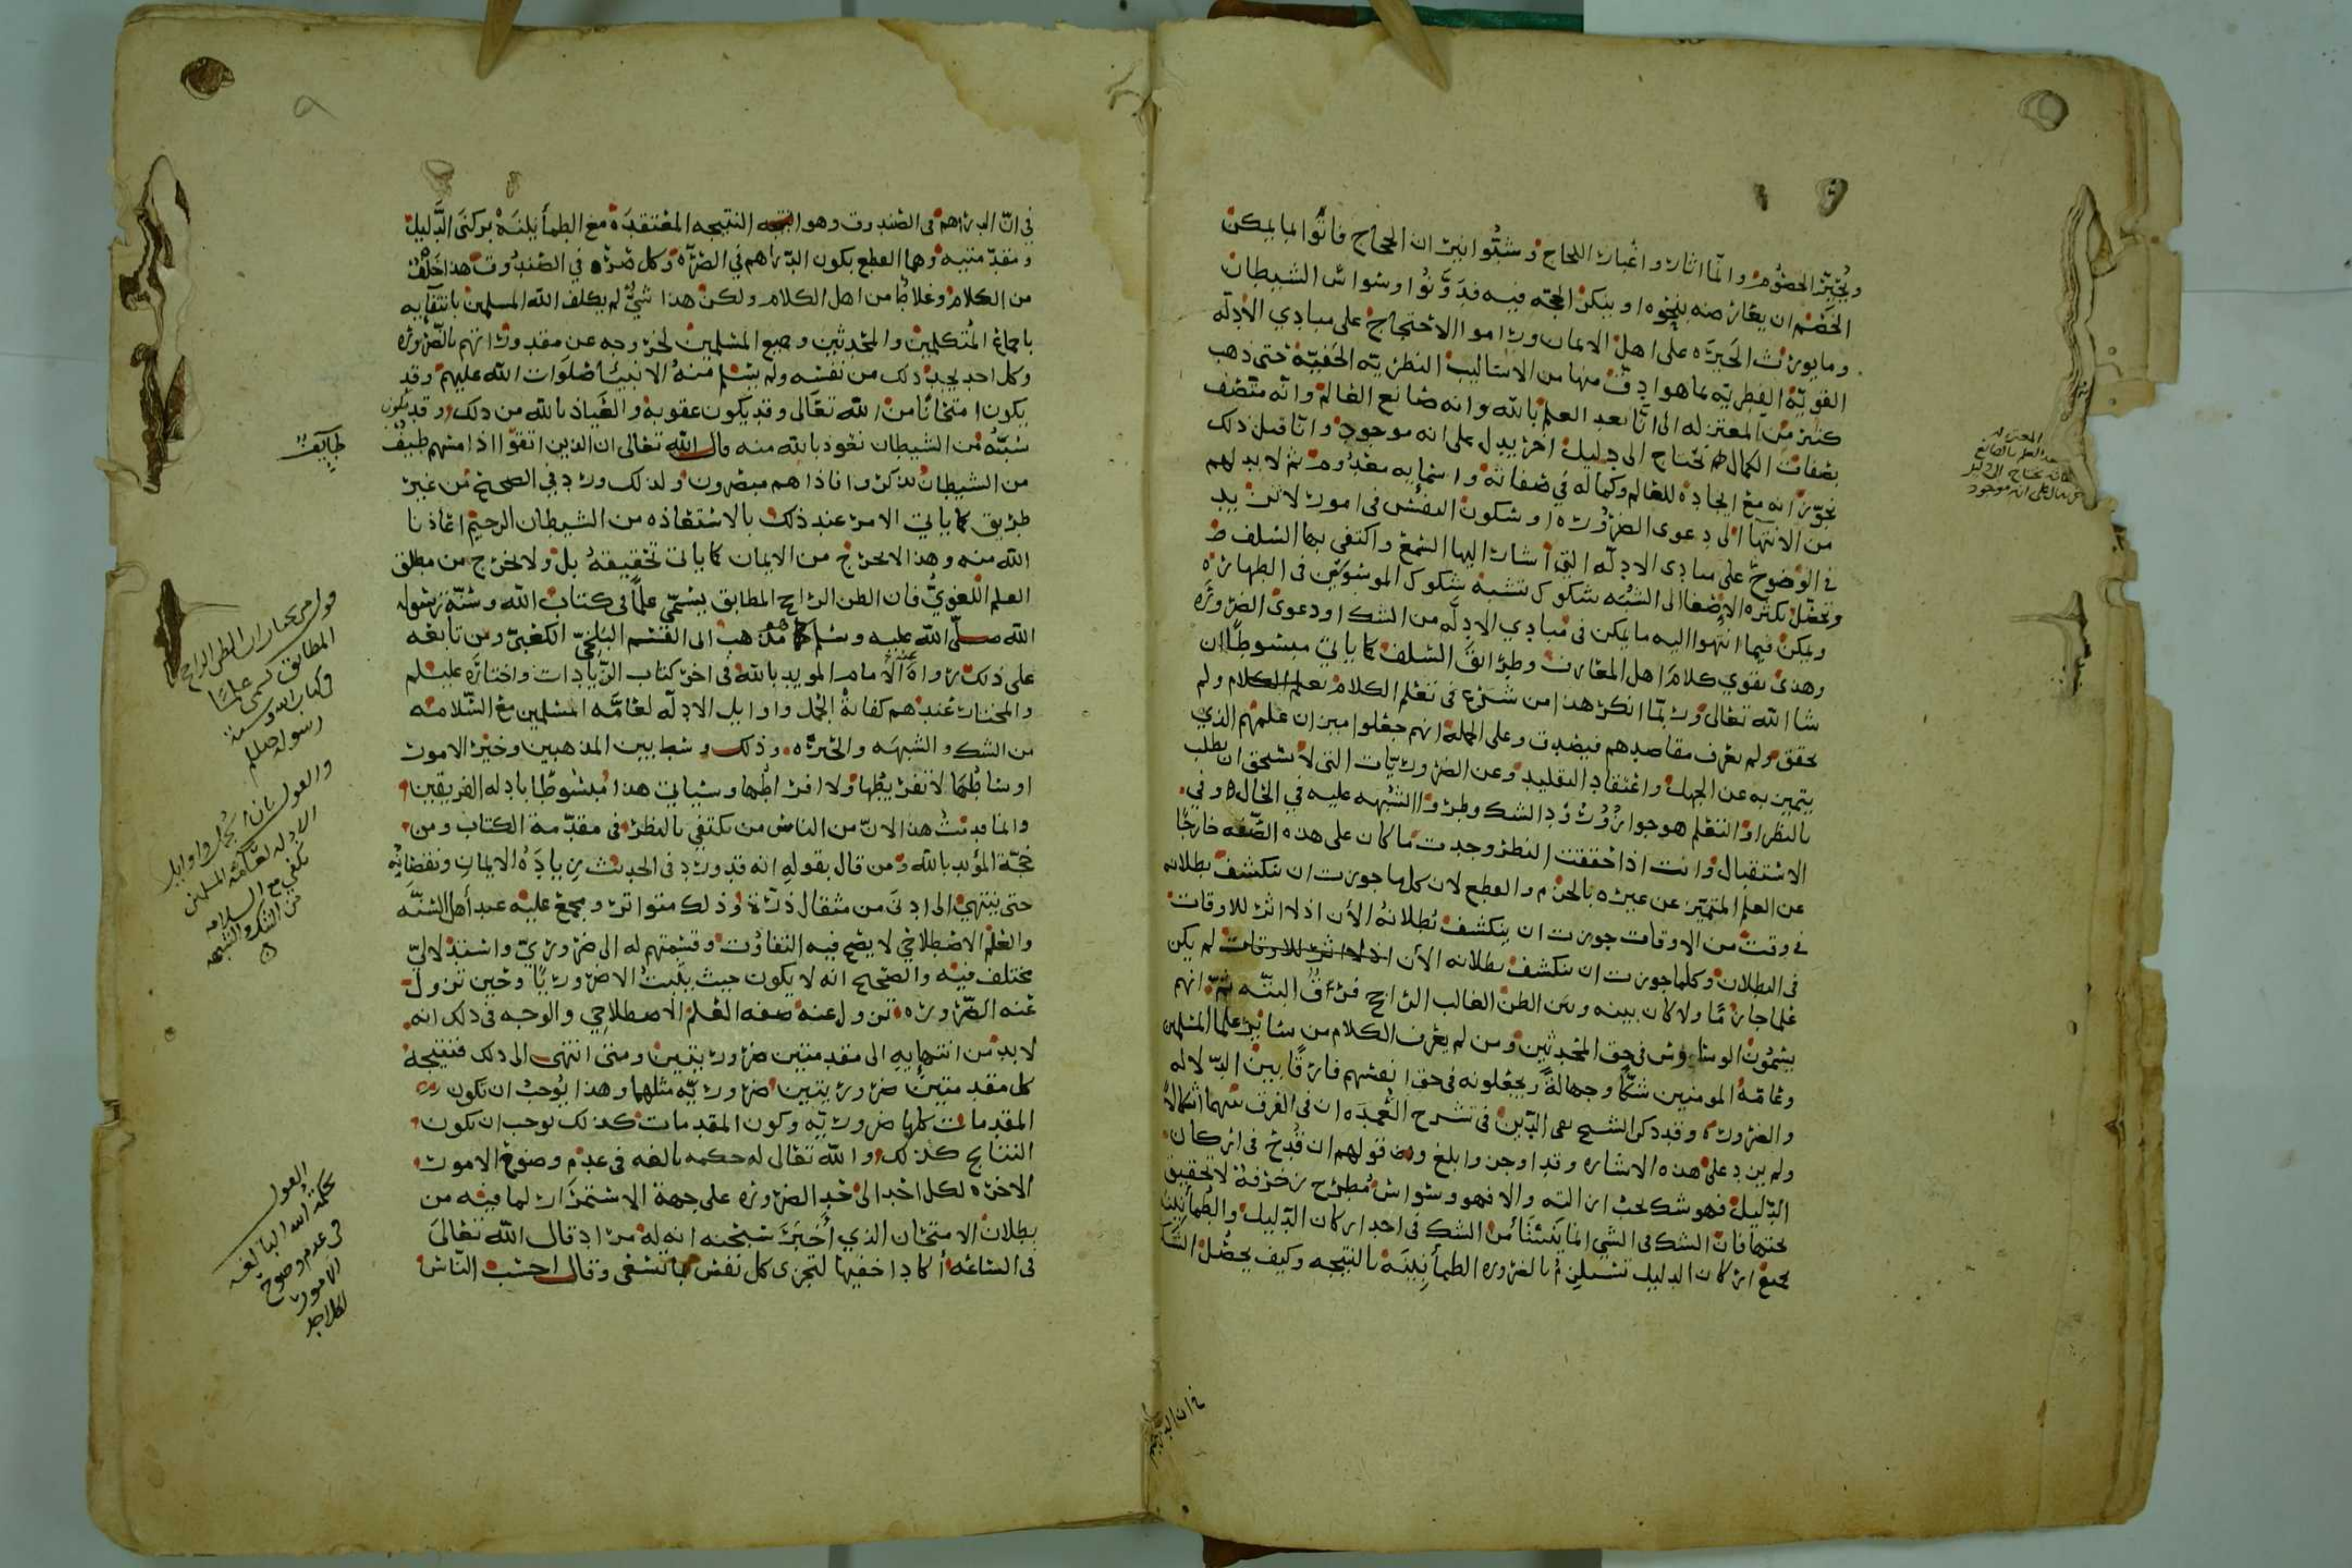 ويُحَيِّر الحضُوم والما اثار واغبار اللجاج وشبُّوا نيران الحجاج فاتوا بما يمكن
الخصم ان يعارضه بنحوه او ينكر الحجه فيه فدوّنوا وسواس الشيطان
وما يورث الحيره على اهل الايمان وراموا الاحتجاج على مبادي الادلّه
القويّة الفطريّه بما هو ادقّ منها من الاساليب النظريّه الخفيّة حتى ذهب
كثير من المعتزله الى انّا بعد العلم بالله وانه صانع العالم وانّه متّصف
بصفات الكمال نحتاج الى دليل اخر يدل على انه موجود وانّا قبل ذلك
نجوّز انه مع ايجاده للعالم وكماله في صفاته واسمايه معدوم ثم لا بد لهم
من الانتهاء الى دعوى الضروره او سكون النفس في امور لا تزيد
في الوضوح على مبادى الادلّه التي اشار اليها السمع واكتفى بها السلف
وتحصّل بكثره الاصغا الى الشبَه شكوك تشبه شكوك الموسوسين في الطهاره
ويمكن فيما انتهوا اليه ما يمكن في مبادي الادلّه من الشك او دعوى الضروره
وهذى يقوي كلام اهل المعارف وطرائق السلف كما ياتي مبسوطا ان
شا الله تعالى وربّما انكر هذا من شرع في تعلم الكلام ولم
يحقق ولم يعرف مقاصدهم فيصدق وعلى الجملة انهم جعلوا ميزان علمهم الذي
يتميز به عن الجهل واعتقاد التقليد وعن الضروريّات التي لا يستحق ان يطلب
بالنظر او التعلم هو جواز ورود الشك وطروّ الشبهه عليه في الحال او في
الاستقبال وانت اذا حققت النظر وجدت ما كان على هذه الصّفه خارجًا
عن العلم المتميّز عن غيره بالجزم والقطع لان كلها جوزت ان ينكشف بطلانه
في وقت من الاوقات جوزت ان ينكشف بطلانهُ الأن اذ لا اثر للاوقات
في البطلان وكلما جوزت ان ينكشف بطلانه الأن اذ لا اثر للاوقات لم يكن
علما جازمًا ولا كان بينه وبين الظن الغالب الراجح فرقٌ البتّه ثمّ انهم
يسمّون الوساوس في حق المحدثين ومن لم يعرف الكلام من ساير علما المسلمين
وعامّة المومنين شكًّا وجهالةً ويجعلونه في حق انفسهم فارقًا بين الدّلاله
والضروره وقد ذكر الشيخ تقي الدّين في شرح العُمدَه ان في الفرق بينهما اشكالاً
ولم يزد على هذه الاشاره وقد اوجز وابلغ قولهم ان قُدح في اركان
الدّليل فهو شك يجب ازالته والا فهو وسواس مُطرح زخرفة لا تحقيق
تحتها فان الشك في الشي انما يَنشَأ من الشك في احد اركان الدّليل والطمأنينة
بجميع اركان الدليل تستلزم بالضروره الطمأنِينَة بالنتيجه وكيف يحصُل الشك
في ان الدراهم
المعتزله
بعد العلم بالصانع
كانه يحتاج الى دليل
على انه موجود
في انّ الدراهم في الصندوق وهو النتيجه المعتقدَة مع الطمأنِينَة بركنَي الدَّليل
ومقدّمتيه وهما القطع بكون الدّراهم في الصُرّه وكل صُرّه في الصُندُوق هذا خَلْفٌ
من الكلام وغلاطًا من اهل الكلام ولكن هذا شيٌ لم يكلف الله المسلمين بانتفآيه
باجماع المُتكلمين والمُحدثين وجميع المسلمين لخروجه عن مقدوراتهم بالضروره
وكل احد يجد ذلك من نفسه ولم يسلم منهُ الانبيآ صلَوات الله عليهم وقد
يكون امتحانًا من الله تعَالى وقد يكون عقوبة والعَياذ بالله من ذلك وقد يكون
سَبَبُهُ من الشيطان نعوذ بالله منه قال الله تعالى ان الذين اتقوا اذا مسهم طيفٌ
من الشيطان تذكروا فاذا هم مبصرون ولذلك ورد في الصحيح من غير
طريق كما ياتي الامر عند ذلك بالاستعاذه من الشيطان الرجيم اعاذنا
الله منه وهذا لا يخرج من الايمان كما ياتي تحقيقهُ بل ولا يخرج من مطلق
العلم اللغويّ فان الظن الراجح المطابق يسمّى علمًا في كتاب الله وسنّة رسول
الله صلّى الله عليه وسلم ذهب الى القسم البلخيّ الكعبيّ ومن تابعه
على ذلك رواهُ عنه الامام المويد بالله في اخر كتاب الزّيادات واختارَه عليه السلم
والمختار عندهم كفايةُ الجُمَل واوايل الادلّه لعامّه المسلمين مع السّلامه
من الشك والشبهَه والحيرَه وذلك وسط بين المذهبين وخيرُ الامور
اوساطُها لا تفريطُها ولا افراطُها وسياتي هذا مُبسُوطًا بادله الفريقين
وانما قدمتُ هذا لانّ من الناس من يكتفي بالنظر في مقدّمة الكتاب ومن
حُجّة المؤيد بالله ومن قال بقولهِ انه قد ورد في الحديث زيادَةُ الايمان ونقصَانُه
حتى ينتهي الى ادنَى من مثقال ذرّة وذلك متواتر ومجمع عليه عند أهل السُنَّه
والعلم الاصطلاحي لا يصح فيه التفاوُت وقسمتهم له الى ضروريّ واستدلاليّ
مختلف فيه والصّحيح انه لا يكون حيث يثبتُ الا ضروريًّا وحين تزول
عنه الضَّروره تزول عنهُ صفه العلم الاصطلاحي والوجه في ذلك انه
لا بد من انتهايِه الى مقدمتين ضروريتين ومتى انتهى الى ذلك فنتيجة
كل مقدمتينِ ضروريتين ضروريّه مثلهما وهذا يُوجبُ ان تكون
المقدمات كلها ضروريّه وكون المقدمات كذلك توجب ان تكون
النتايج كذلك والله تعالى له حكمه بالغه في عدم وضوح الامور
الاخره لكل احد الى حد الضروره على جهة الاستمرَار لما فيه من
بطلان الامتحان الذي أخبَرَ سبحنه انه له مراد قال الله تعالىَ
في الساعَه أكاد اخفيها لتجزى كل نفس بما تسعى وقال احسب النّاس
طآيف
قول من يختار ان الظن الراجح
المطابق يسمى علمًا
في كتاب الله وسنة
رسوله صللم
والقول بان الجُمَل واوايل
الادله لعامّه المسلمين
تكفي مع السلامه
من الشك والشبهه
القول
بحكمة الله البالغه
في عدم وضوح
الامور
لكل احد